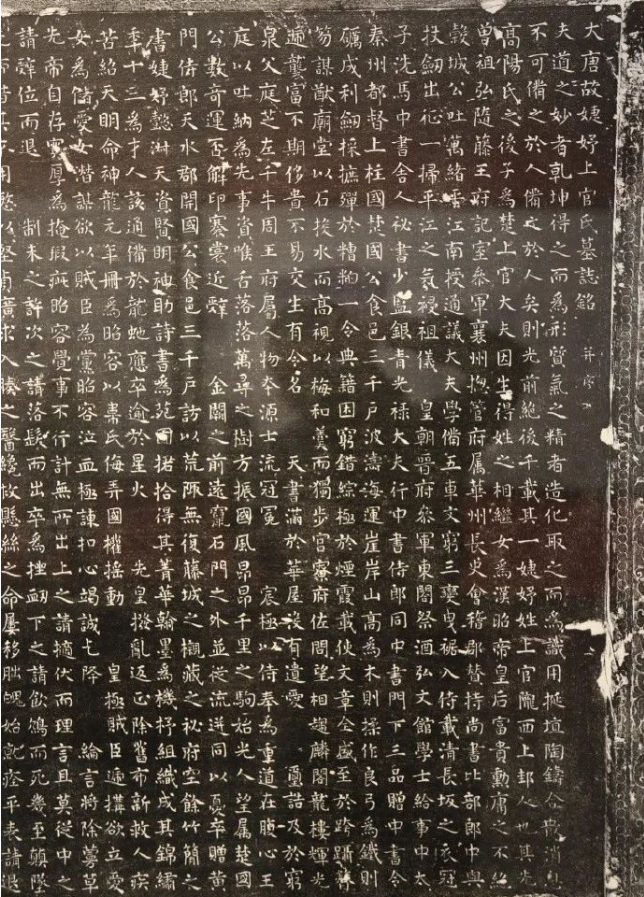 大唐故婕妤上官氏墓誌銘 并序
夫道之妙者乾坤得之而為形質氣之精者造化取之而為識用挻埴陶鑄合散消息
不可備之於人備之於人矣則光前絕後千載其一婕妤姓上官隴西上邽人也其先
高陽氏之後子為楚上官大夫因生得姓之相繼女為漢昭帝皇后富貴勳庸之不絕
曾祖弘隨藤王府記室參軍襄州揔管府屬華州長史會稽郡贊持尚書比部郎中與
穀城公吐萬緒平江南授通議大夫學備五車文窮三變曳裾入侍載清長坂之衣冠
杖劒出征一掃平江之氛祲祖儀 皇朝晉府參軍東閤祭酒弘文館學士給事中太
子洗馬中書舍人祕書少監銀青光祿大夫行中書侍郎同中書門下三品贈中書令
秦州都督上柱國楚國公食邑三千戶波濤海運崖岸山高為木則操作良弓為鐵則
礪成利劒採摭殫於糟粕一令典籍困窮錯綜極於煙霞載使文章全盛至於跨躡簪
笏謀猷廟堂以石投水而高視以梅和羹而獨步官寮府佐問望相趨麟閣龍樓輝光
遞襲富不期侈貴不易交生有令名 天書滿於華屋沒有遺愛 璽誥及於窮
泉父庭芝左千牛周王府屬人物本源士流冠冕 宸極以侍奉為重道在腹心王
庭以吐納為先事資喉舌落落萬尋之樹方振國風昂昂千里之駒始光人望屬楚國
公數奇運否解印褰裳近辭 金闕之前遠竄石門之外並從流迸同以憂卒贈黃
門侍郎天水郡開國公食邑三千戶訪以荒陬無復藤城之櫬藏之祕府空餘竹簡之
書婕妤懿淑天資賢明神助詩書為苑囿捃拾得其菁華翰墨為機杼組織成其錦繡
年十三為才人該通備於龍虵應卒逾於星火 先皇撥亂返正除舊布新救人疾
苦紹天明命神龍元年冊為昭容以韋氏侮弄國權搖動 皇極賊臣遞構欲立愛
女為儲愛女潛謀欲以賊臣為黨昭容泣血極諫扣心竭誠乞降 綸言將除蔓草
先帝自存寬厚為掩瑕疵昭容覺事不行計無所出上之請擿伏而理言且莫從中之
請辭位而退 制未之許次之請落髮而出卒為挫衂下之請飲鴆而死幾至顛墜
用慜以堅貞廣求入腠之醫纔救懸絲之命屢移朏魄始就痊平表請退